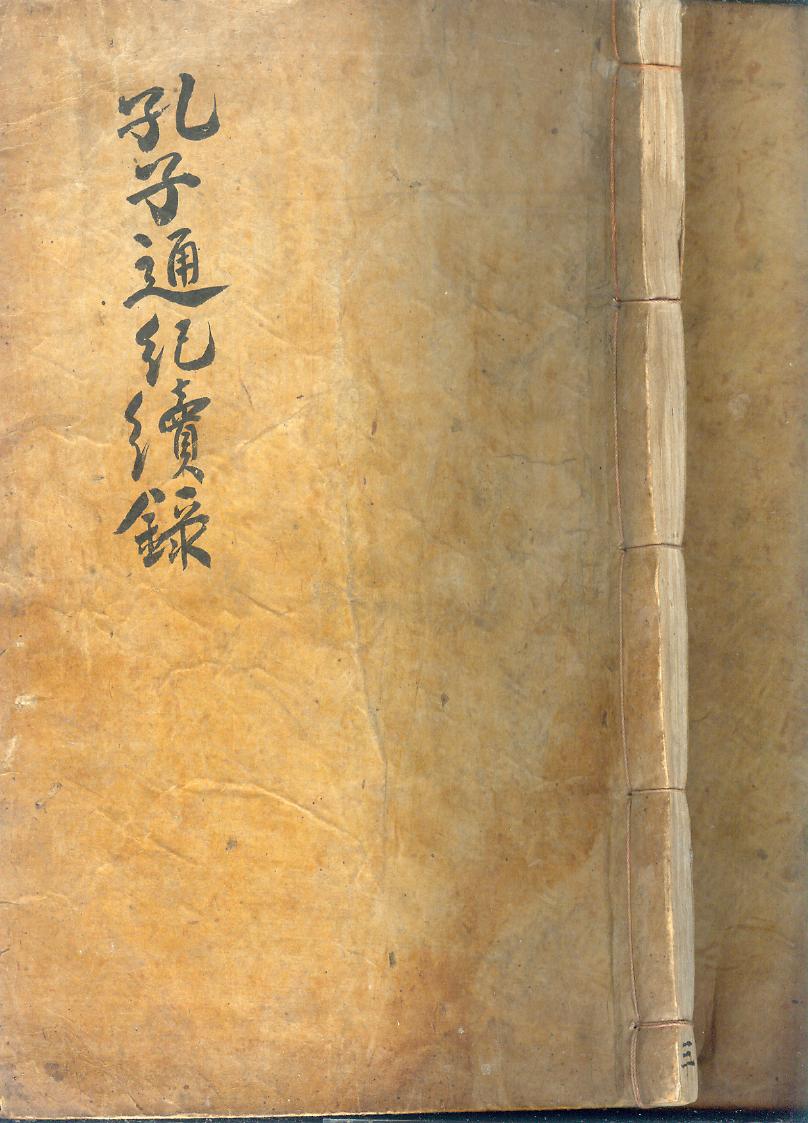 孔子通紀續錄
三